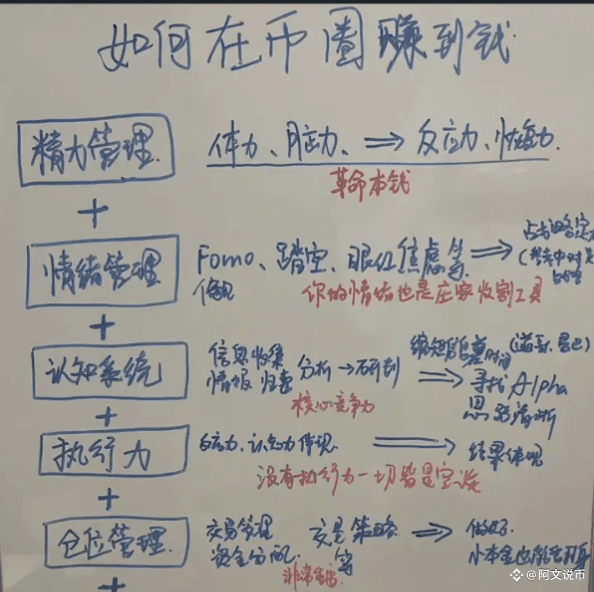 如何在币圈赚到钱
精力管理 体力、脑力、⇒ 反应力、恢复力
革命本钱
+
情绪管理 Fomo、踏空、眼红焦虑等 ⇒
你的情绪也是庄家收割工具
+
认知系统 信息收集
情报 归类 分析→研判 ⇒ 寻找Alpha
思路清晰
核心竞争力
+
执行力 反应力、认知力体现 ⇒ 结果体现
没有执行力一切皆是空谈
+
仓位管理 交易管理 交易策略 ⇒ 做好
资金分配 等 小本金也能翻身
非常重要
+
@阿文说币